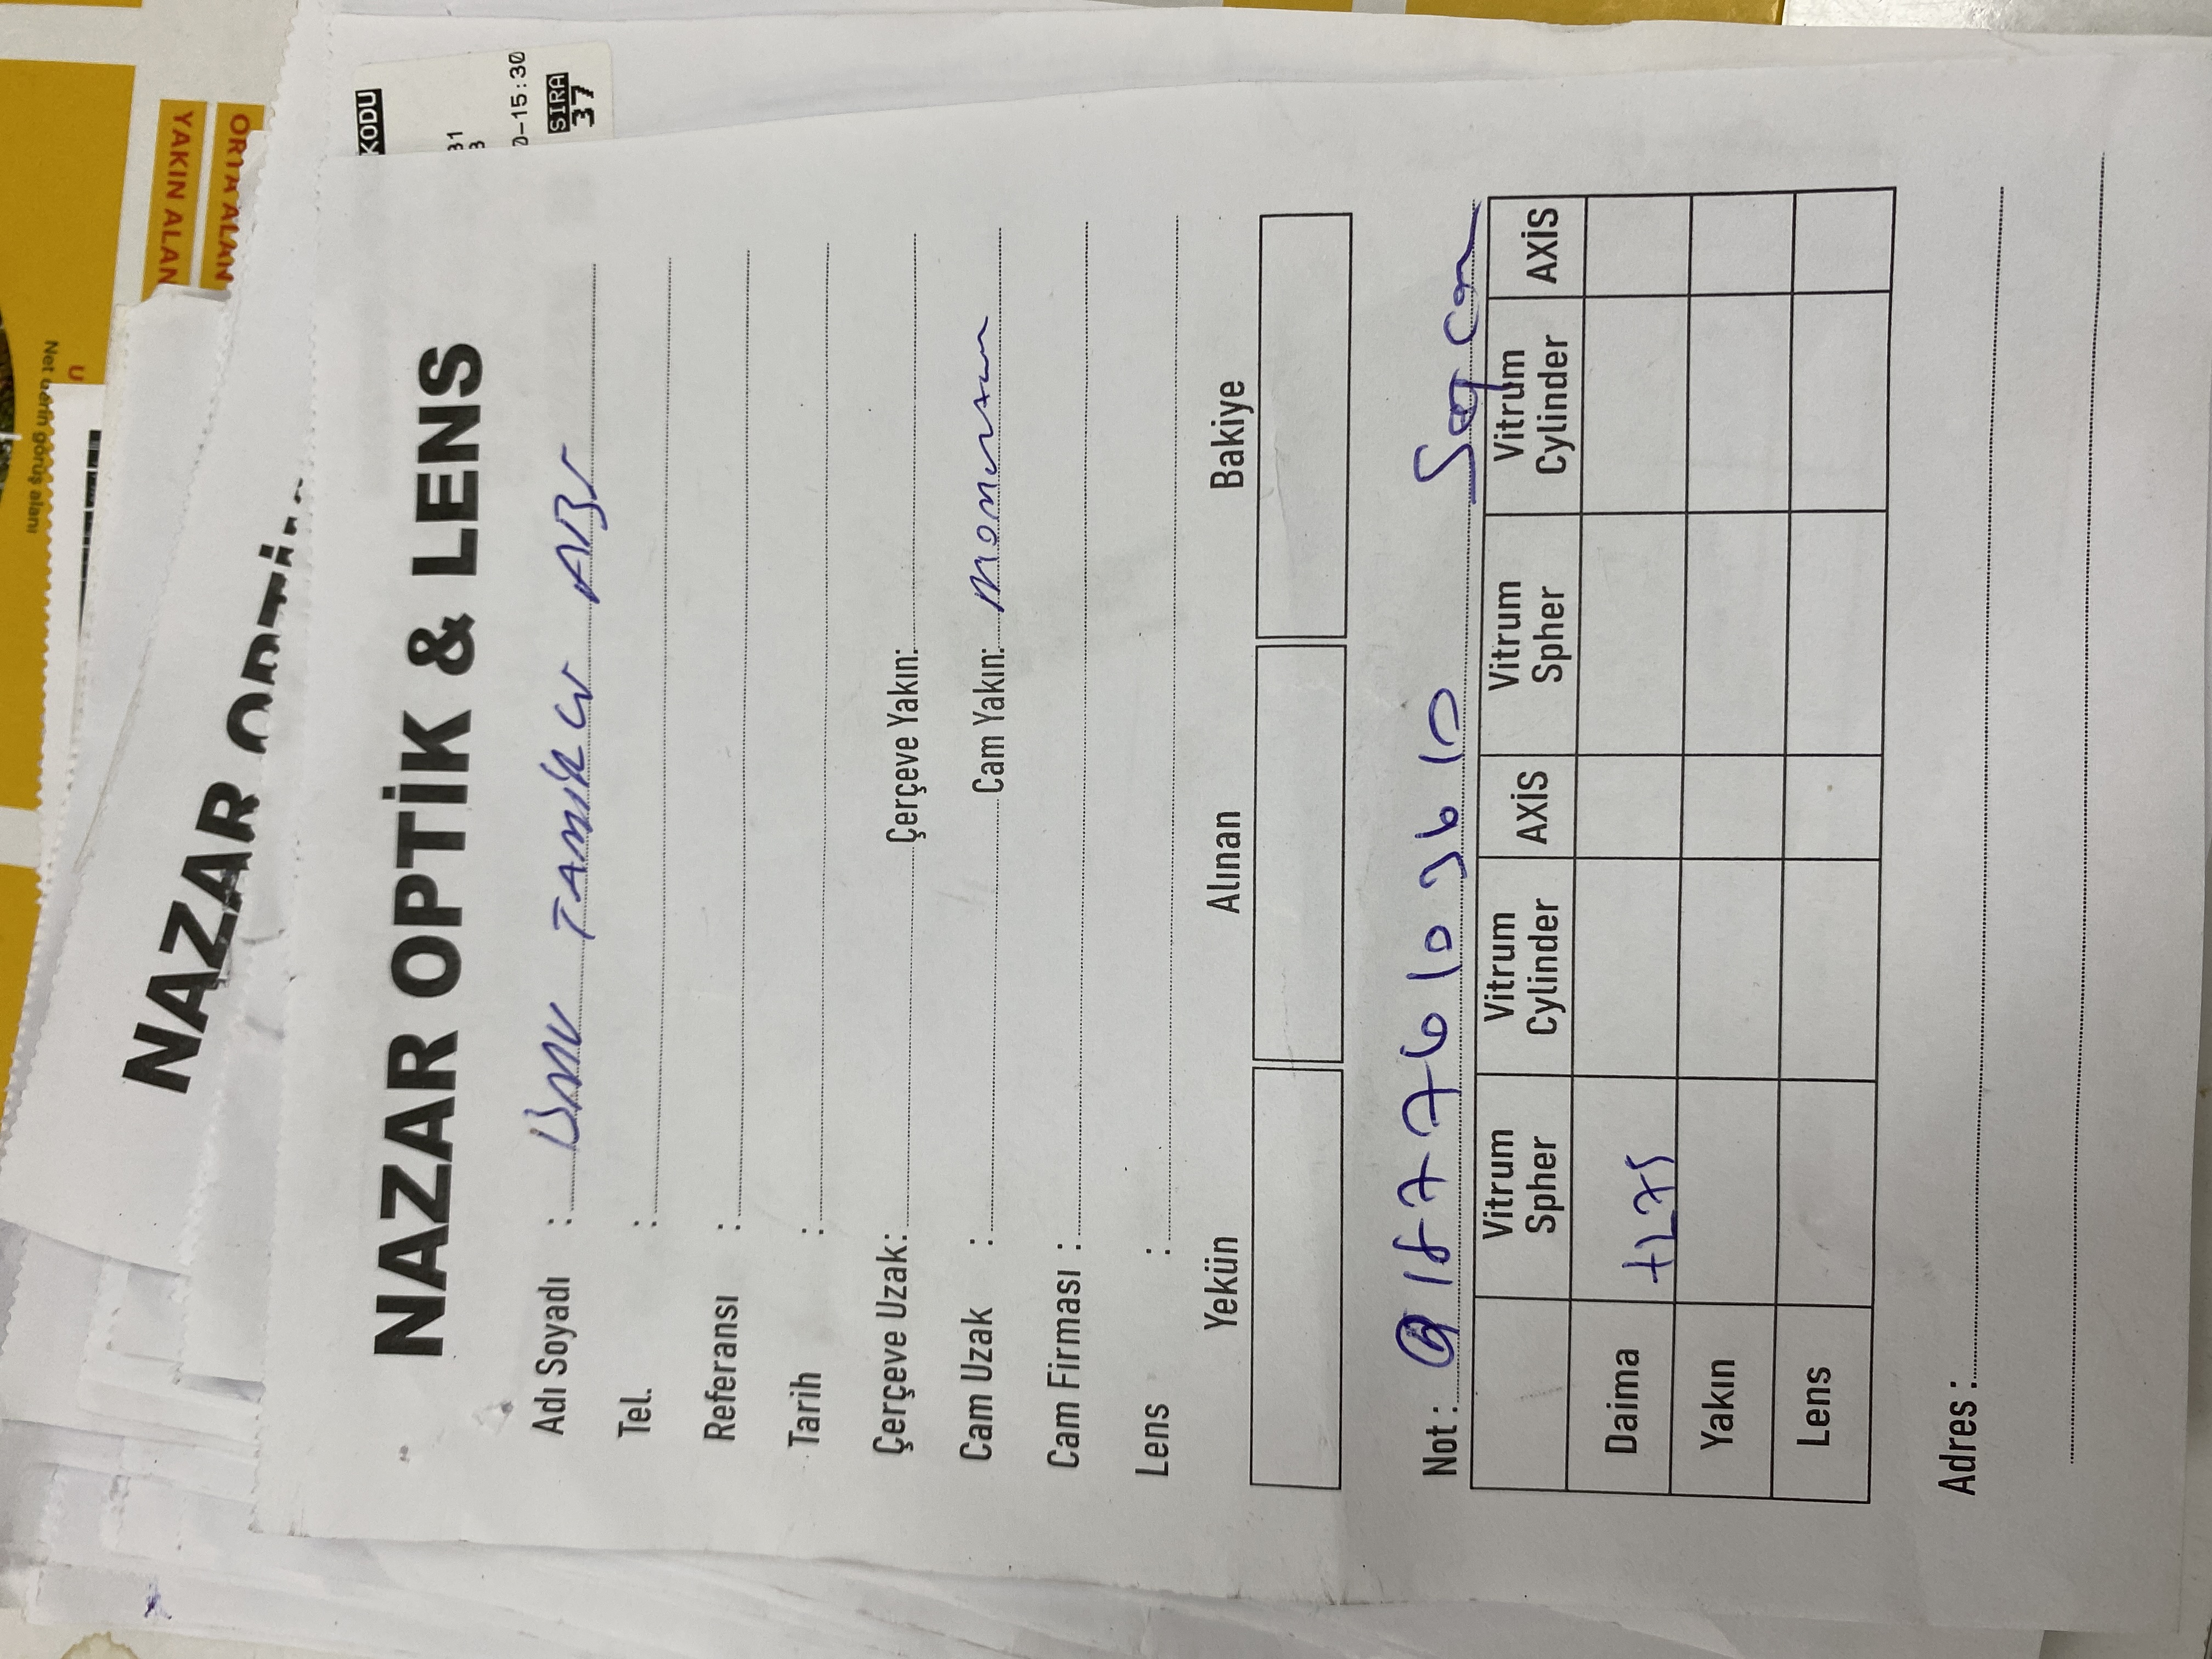 Net derin görüş alanı
U
YAKIN ALAN
ORTA ALAN
NAZAR OPTİK
KODU
31
3
0-15:30
SIRA
37
NAZAR OPTİK & LENS
Adı Soyadı : BMV TAMİRCİ ABİ
Tel. :
Referansı :
Tarih :
Çerçeve Uzak: Çerçeve Yakın:
Cam Uzak : Cam Yakın:
Cam Firması :
Lens :
Yekün Alınan Bakiye
Not : 18776103610
Vitrum Spher Vitrum Cylinder AXİS Vitrum Spher Vitrum Cylinder AXİS
Daima +275
Yakın
Lens
Adres :